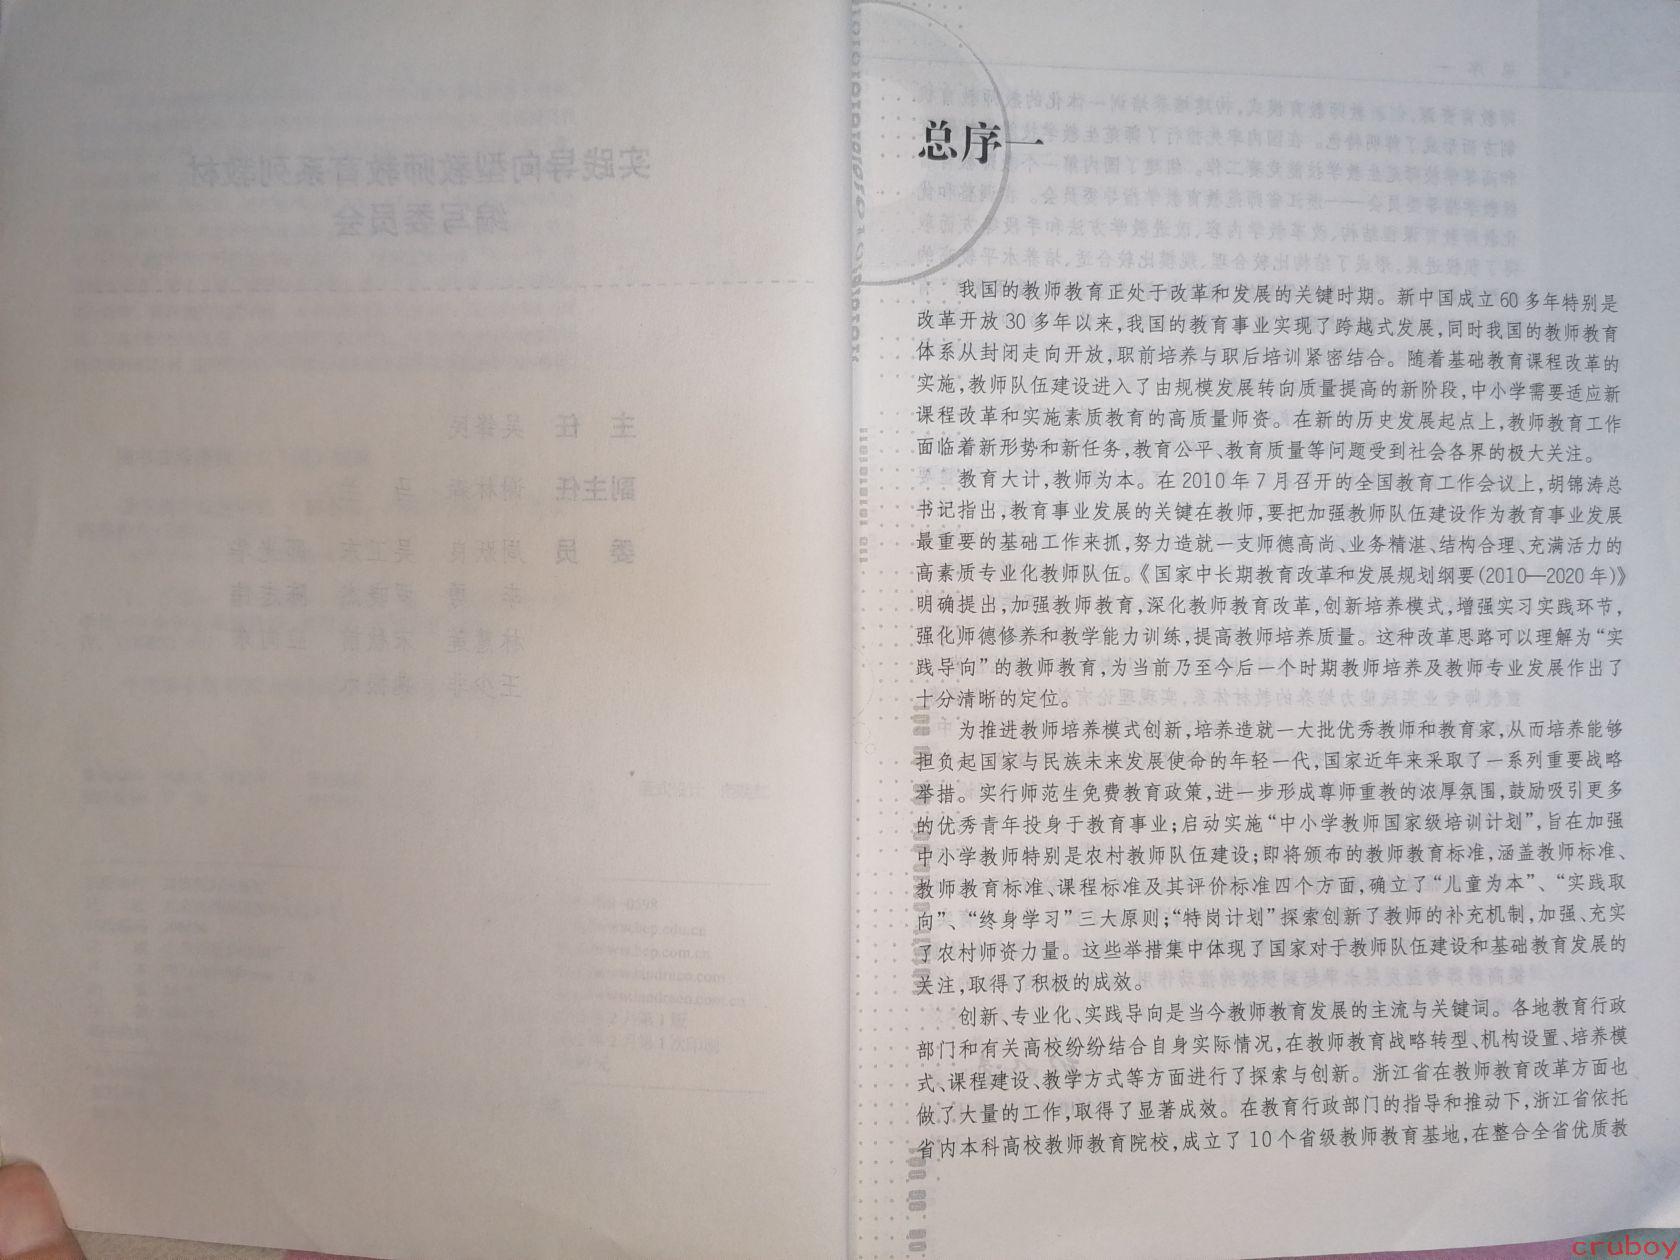 总序一
我国的教师教育正处于改革和发展的关键时期。新中国成立60多年特别是
改革开放30多年以来,我国的教育事业实现了跨越式发展,同时我国的教师教育
体系从封闭走向开放,职前培养与职后培训紧密结合。随着基础教育课程改革的
实施,教师队伍建设进入了由规模发展转向质量提高的新阶段,中小学需要适应新
课程改革和实施素质教育的高质量师资。在新的历史发展起点上,教师教育工作
面临着新形势和新任务,教育公平、教育质量等问题受到社会各界的极大关注。
教育大计,教师为本。在2010年7月召开的全国教育工作会议上,胡锦涛总
书记指出,教育事业发展的关键在教师,要把加强教师队伍建设作为教育事业发展
最重要的基础工作来抓,努力造就一支师德高尚、业务精湛、结构合理、充满活力的
高素质专业化教师队伍。《国家中长期教育改革和发展规划纲要(2010—2020年)》
明确提出,加强教师教育,深化教师教育改革,创新培养模式,增强实习实践环节,
强化师德修养和教学能力训练,提高教师培养质量。这种改革思路可以理解为“实
践导向”的教师教育,为当前乃至今后一个时期教师培养及教师专业发展作出了
十分清晰的定位。
为推进教师培养模式创新,培养造就一大批优秀教师和教育家,从而培养能够
担负起国家与民族未来发展使命的年轻一代,国家近年来采取了一系列重要战略
举措。实行师范生免费教育政策,进一步形成尊师重教的浓厚氛围,鼓励吸引更多
的优秀青年投身于教育事业;启动实施“中小学教师国家级培训计划”,旨在加强
中小学教师特别是农村教师队伍建设;即将颁布的教师教育标准,涵盖教师标准、
教师教育标准、课程标准及其评价标准四个方面,确立了“儿童为本”、“实践取
向”、“终身学习”三大原则;“特岗计划”探索创新了教师的补充机制,加强、充实
了农村师资力量。这些举措集中体现了国家对于教师队伍建设和基础教育发展的
关注,取得了积极的成效。
创新、专业化、实践导向是当今教师教育发展的主流与关键词。各地教育行政
部门和有关高校纷纷结合自身实际情况,在教师教育战略转型、机构设置、培养模
式、课程建设、教学方式等方面进行了探索与创新。浙江省在教师教育改革方面也
做了大量的工作,取得了显著成效。在教育行政部门的指导和推动下,浙江省依托
省内本科高校教师教育院校,成立了10个省级教师教育基地,在整合全省优质教
cruboy